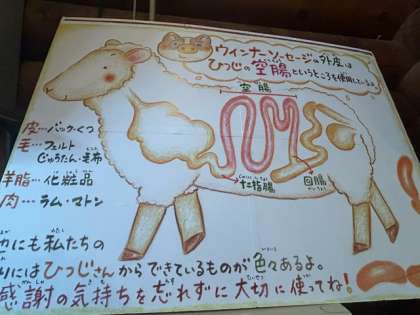 ウィンナーソーセージの外皮は
ひつじの空腸というところを使用しているよ
空腸
皮…バック・くつ
毛…フェルト
じゅうたん・毛布
羊脂…化粧品
肉…ラム・マトン
十二指腸
回腸
にも私たちの
りにはひつじさんからできているものが色々あるよ。
感謝の気持ちを忘れずに大切に使ってね!